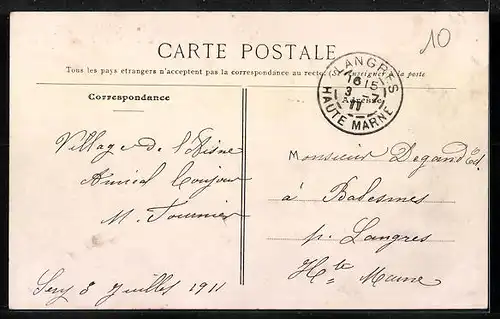 10
CARTE POSTALE
Tous les pays étrangers n'acceptent pas la correspondance au recto. (Se renseigner à la poste
LANGRES
16 15
3 - 7
11
HAUTE MARNE
Correspondance
Adresse
Village de l'Aisne
Amical Bonjour
M. Fournier
8 Juillet 1911
Monsieur Degand Ed.
à Balesmes
p. Langres
Hte Marne